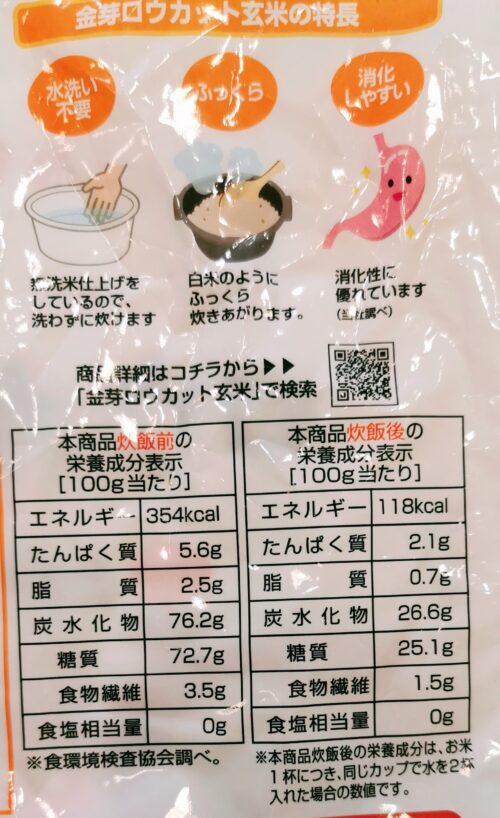 金芽ロウカット玄米の特長
水洗い
不要
ふっくら
消化
しやすい
洗米仕上げを
しているので、
洗わずに炊けます
白米のように
ふっくら
炊きあがります。
消化性に
優れています
(当社調べ)
商品詳細はコチラから▶▶
「金芽ロウカット玄米」で検索
本商品炊飯前の
栄養成分表示
[100g当たり]
エネルギー 354kcal
たんぱく質 5.6g
脂質 2.5g
炭水化物 76.2g
糖質 72.7g
食物繊維 3.5g
食塩相当量 0g
※食環境検査協会調べ。
本商品炊飯後の
栄養成分表示
[100g当たり]
エネルギー 118kcal
たんぱく質 2.1g
脂質 0.7g
炭水化物 26.6g
糖質 25.1g
食物繊維 1.5g
食塩相当量 0g
※本商品炊飯後の栄養成分は、お米
1杯につき、同じカップで水を2杯
入れた場合の数値です。